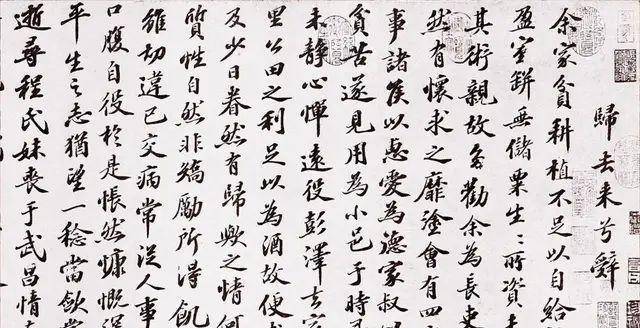 歸去来兮辭
余家貧耕植不足以自給
盈室缾無儲粟生〻所資
其術親故多勸余為長吏
然有懷求之靡塗會有四
事諸侯以惠愛為德家叔
貧苦遂見用為小邑于時
未静心憚遠役彭澤去家
里公田之利足以為酒故便
及少日眷然有歸歟之情何
質性自然非矯勵所得飢
雖切違己交病常從人事
口腹自役於是悵然慷慨深
平生之志猶望一稔當斂
逝尋程氏妹喪于武昌情